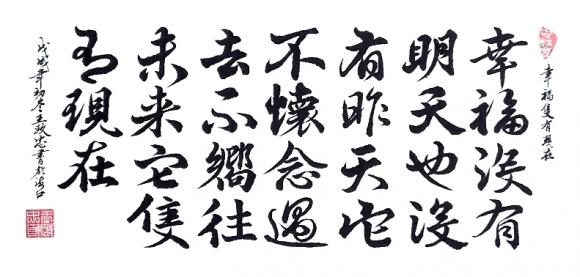 幸福隻有現在
幸福沒有
明天也沒
有昨天它
不懷念過
去不嚮往
未来它隻
有現在
戊戌年初冬王政忠書於海口